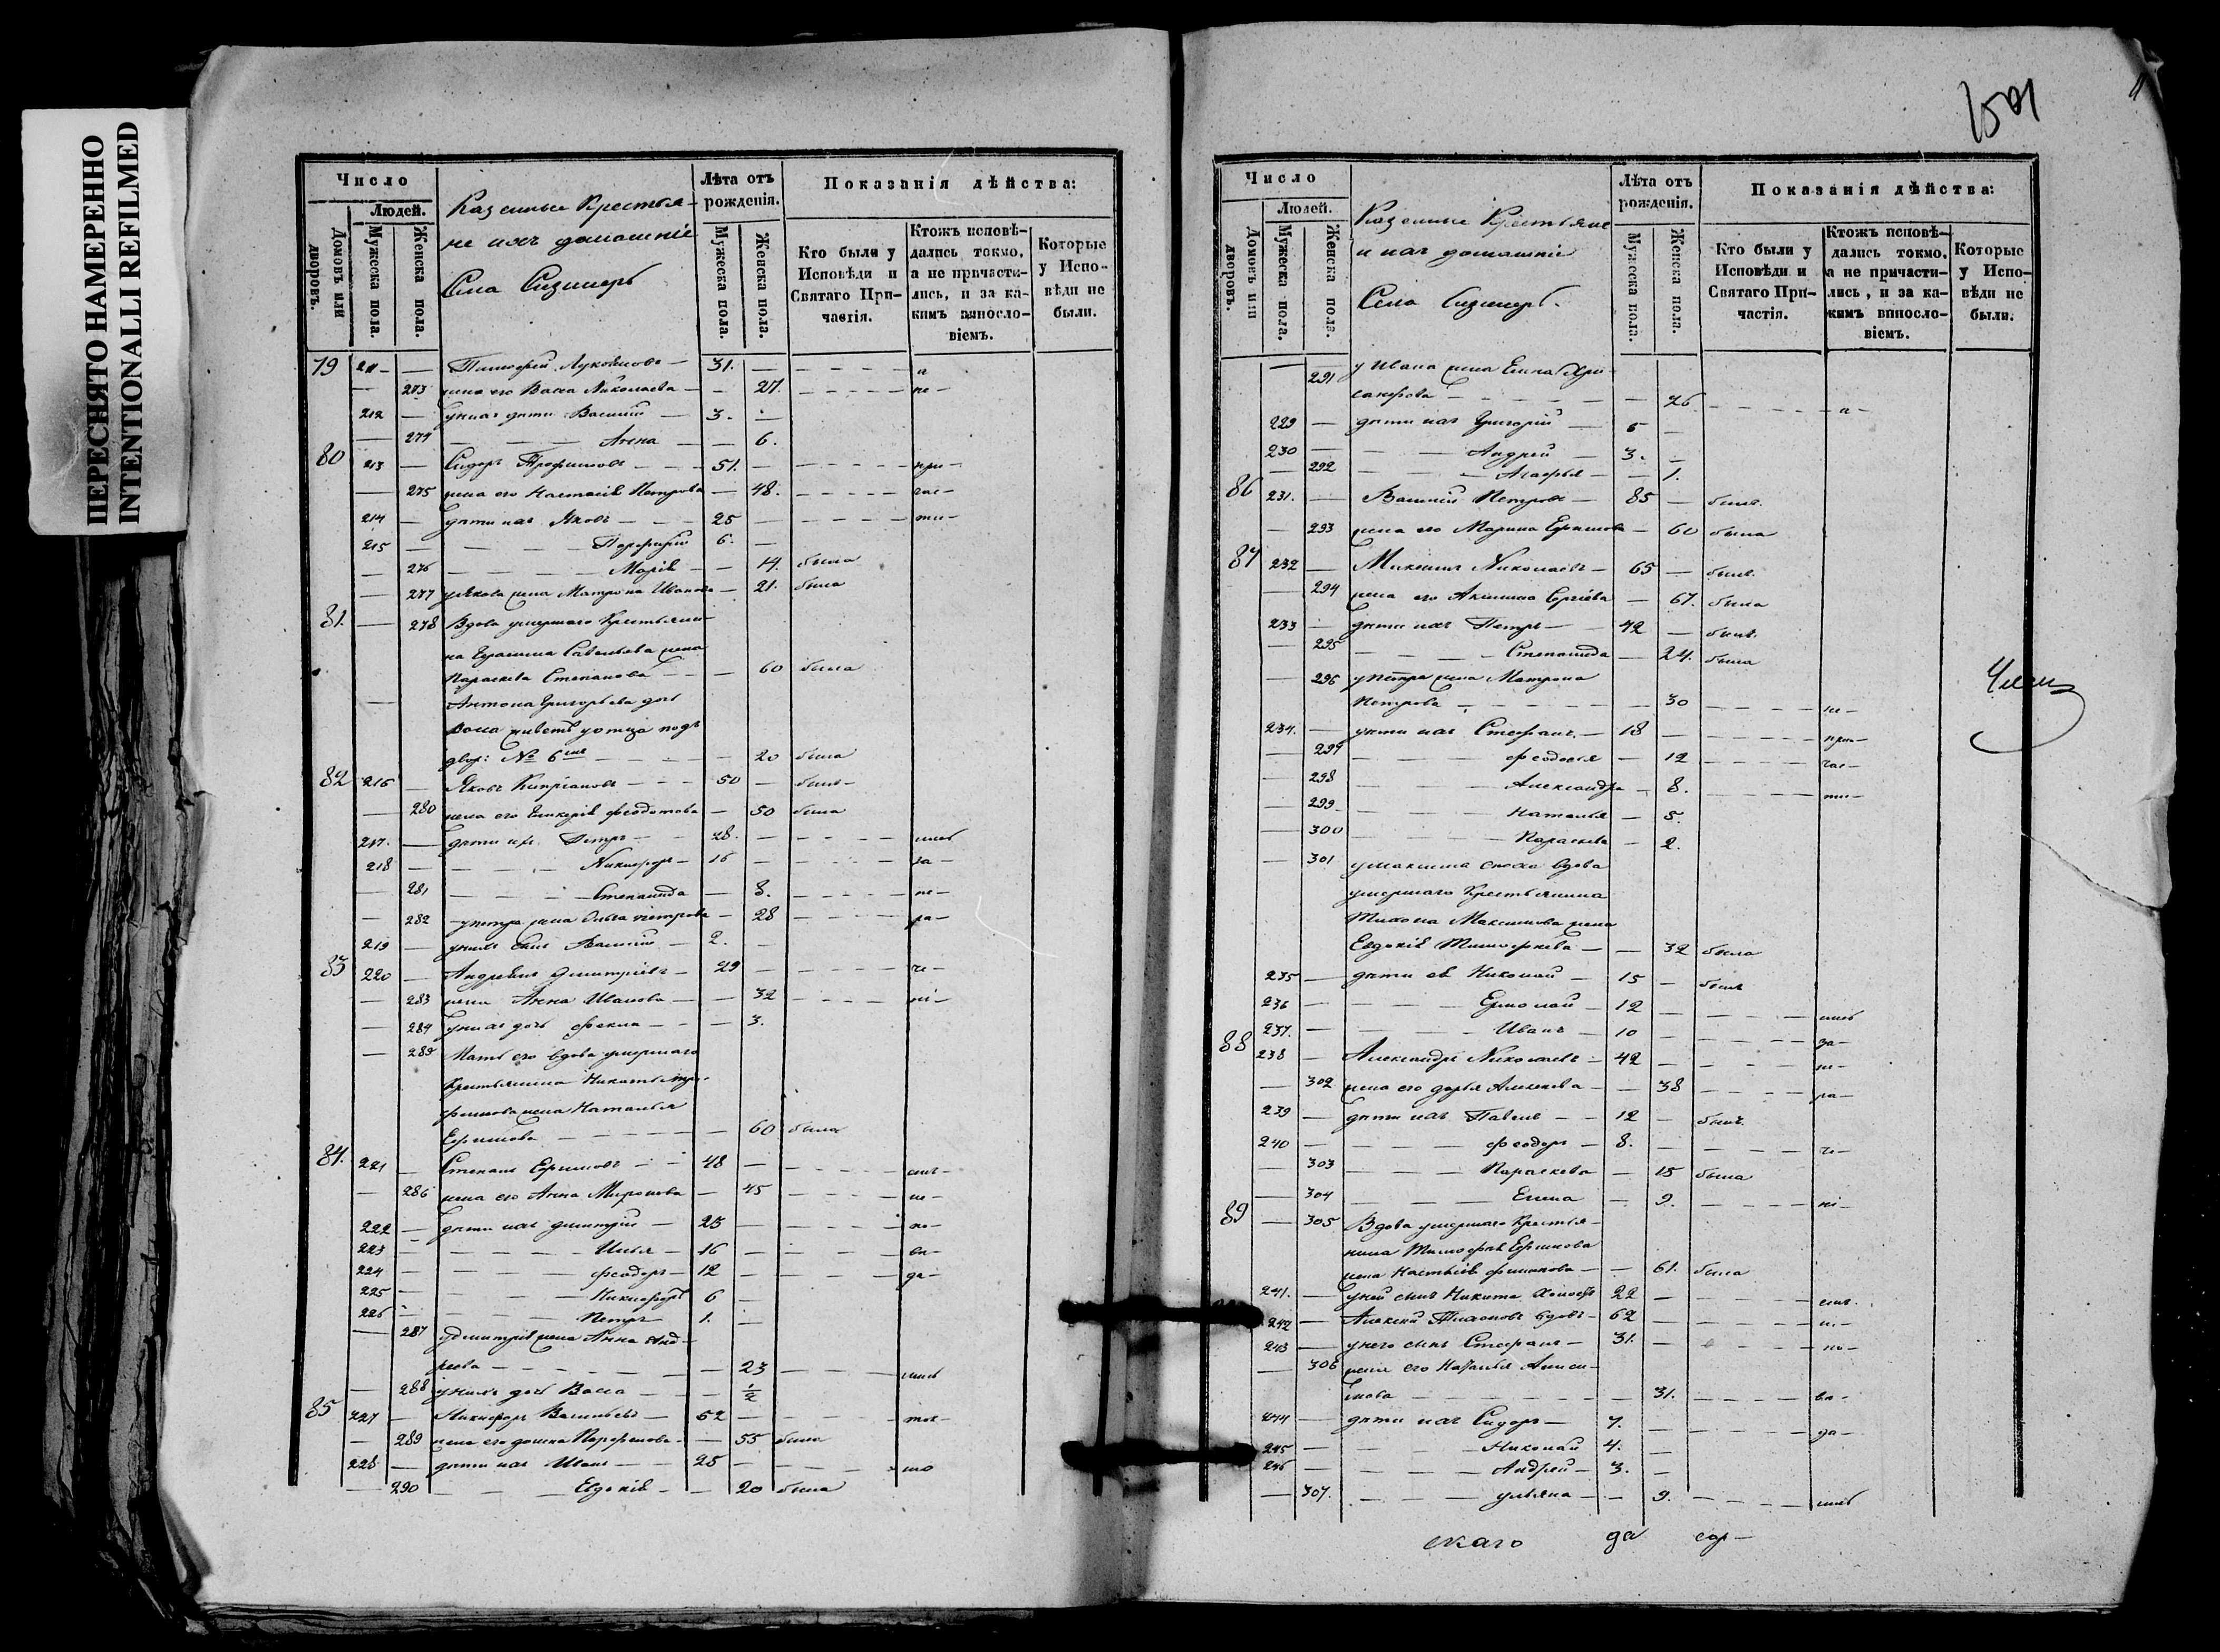 ПЕРЕСНЯТО НАМЕРЕННО
INTENTIONALLI REFILMED
Число
Людей.
Домовъ или дворовъ.
Мужеска пола.
Женска пола.
Казенные Крестья-
не ихъ домашніе
Села
Лѣта отъ рожденія.
Мужеска пола.
Женска пола.
Показанія дѣйства:
Кто были у Исповѣди и Святаго При-частія.
Ктожъ исповѣ-дались токмо, а не причасти-лись, и за ка-кимъ винословіемъ.
Которые у Испо-вѣди не были.
79 211 — 31. —
— 273 жена его Васса Николаева — — 27. не-
212 — у нихъ дѣти Василій — 3. —
— 274 — — — Анна — — 6.
80 213 — Сидоръ Трофимовъ — — — 51. — при-
— 275 жена его Настасія Петрова — 48. час-
214 — дѣти ихъ Яковъ — — — 25 — ти-
215 — — — — Порфирій 6. —
— 276 — — — — Марія — — 14. была
— 277 у Якова жена Матрона Иванова — 21. была
81. — 278 Вдова умершаго Крестьяни-
на Герасима Савельева жена
Параскева Степанова — — — 60 была
— Антона Григорьева дочь
Васса живетъ у отца подъ
двор: № 6 — — — — — 20 была
82 216 — Яковъ Кипріановъ — — — 50 — былъ-
— 280 жена его Гликерія Феодотова — 50 была
217. — дѣти ихъ Петръ — — 28. —
218 — — — — Никифоръ — 16 — за-
— 281 — — — — Степанида — 8. не-
— 282 у Петра жена Ольга Петрова — 28 ра-
219 — у нихъ сынъ Василій — 2. —
83 220 — Дмитріевъ — 29 — че-
— 283 жена Анна Иванова — — 32 ні-
— 284 у нихъ дочь Фекла — — — 3.
— 285 Мать его вдова умершаго
Крестьянина Никиты Тро-
фимова жена Наталья
Ефимова — — — — — 60 была
84. 221 — Степанъ Ефимовъ — — 48 —
— 286 жена его Анна Миронова — 45
222 — дѣти ихъ Димитрій — 25 — по-
223 — — — — Илья — 16 —
224 — — — — Феодоръ — 12 — да-
225 — — — — Никифоръ 6 —
226 — — — — Петръ 1. —
— 287 у Димитрія жена Анна Анд-
реева — — — — — 23
— 288 у нихъ дочь Васса — — 1/2
85 227 — Никифоръ Васильевъ — 52 — ток-
— 289 жена его Домна Парфенова — — 55 была
228 — дѣти ихъ Иванъ — — 25 — мо
— 290 — — — Евдокія — — 20 была
1501
Число
Людей.
Домовъ или дворовъ.
Мужеска пола.
Женска пола.
Казенные Крестьяне
и ихъ домашніе
Села
Лѣта отъ рожденія.
Мужеска пола.
Женска пола.
Показанія дѣйства:
Кто были у Исповѣди и Святаго При-частія.
Ктожъ исповѣ-дались токмо, а не причасти-лись, и за ка-кимъ винословіемъ.
Которые у Испо-вѣди не были.
— 291 у Ивана жена Елена Хри-
санфова — — — — — — 26
229 — дѣти ихъ Григорій — 5 —
230 — — — Андрей — 3. —
— 292 — — — Агафья — — 1.
86 231. — Василій Петровъ — 85 — былъ.
— 293 жена его Марина Ермилова — 60 была
87 232 — Николаевъ — 65 — былъ.
— 294 жена его Акилина Сергіева — 67. была
233 — дѣти ихъ Петръ — 42 — былъ.
— 295 — — — — Степанида — 24. была
— 296 у Петра жена Матрона
Петрова — — — — — 30 не-
234. — дѣти ихъ Стефанъ — 18 — при-
— 297 — — — Феодосья — 12 час-
— 298 — — — Александра — 8. ти-
— 299 — — — Наталья — 5.
— 300 — — — Параскева — 2.
— 301 у Максима сноха вдова
умершаго Крестьянина
Тихона Максимова жена
Евдокія Тимофеева — — 32 была
235 — дѣти её Николай — 15 — былъ
236 — — — — Ермолай — 12
237. — — — — Иванъ — 10 за-
88 238 — Александръ Николаевъ — 42 — не-
— 302 жена его Дарья Алексеева — — 38 ра-
239 — дѣти ихъ Павелъ — — 12 — былъ.
240 — — — — Феодоръ — 8. че-
— 303 — — — Параскева — 15 была
— 304 — — — Елена — 9. ні-
89 — 305 Вдова умершаго Крестья-
нина Тимофея Ефимова
жена Настасія Филипова — — 61. была
241. — у ней сынъ Никита 22 —
242 — Алексей вдовъ — 62 —
243 — у него сынъ Стефанъ — 31. — по-
— 306 жена его Наталья Аниси-
мова — — — — — — 31.
244 — дѣти ихъ Сидоръ — 7. да-
245 — — — — Николай 4. —
246 — — — — Андрей — 3. —
— 307. — — — Ульяна — — 9.
скаго да